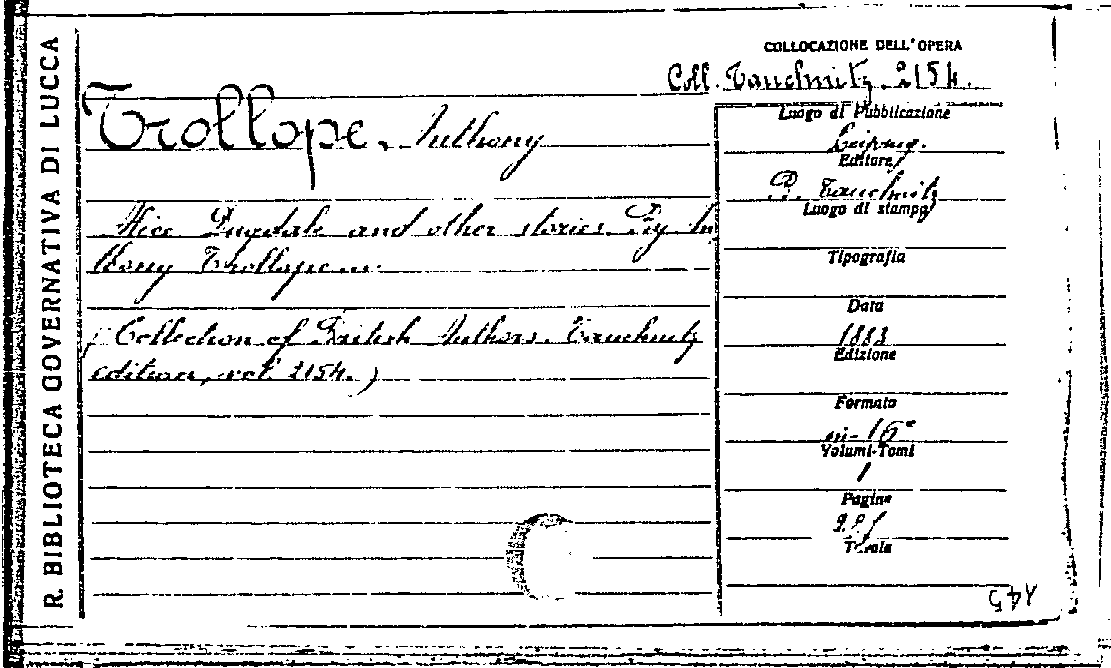 R. BIBLIOTECA GOVERNATIVA DI LUCCA
COLLOCAZIONE DELL'OPERA
Coll. Tauchnitz. 2154.
Trollope, Anthony
Alice Dugdale and other stories. By An
thony Trollope.
(Collection of British Authors. Tauchnitz
edition, vol. 2154.)
Luogo di Pubblicazione
Leipzig.
Editore
B. Tauchnitz
Luogo di stampa
Tipografia
Data
1883
Edizione
Formato
in-16°
Volumi-Tomi
1
Pagine
Tavole
145